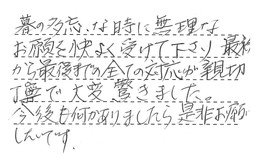 暮の多忙な時に無理な
お願を快よく受けて下さり最初
から最後までの全ての対応が親切
丁寧で大変驚きました。
今後も何かありましたら是非お願
しんです。